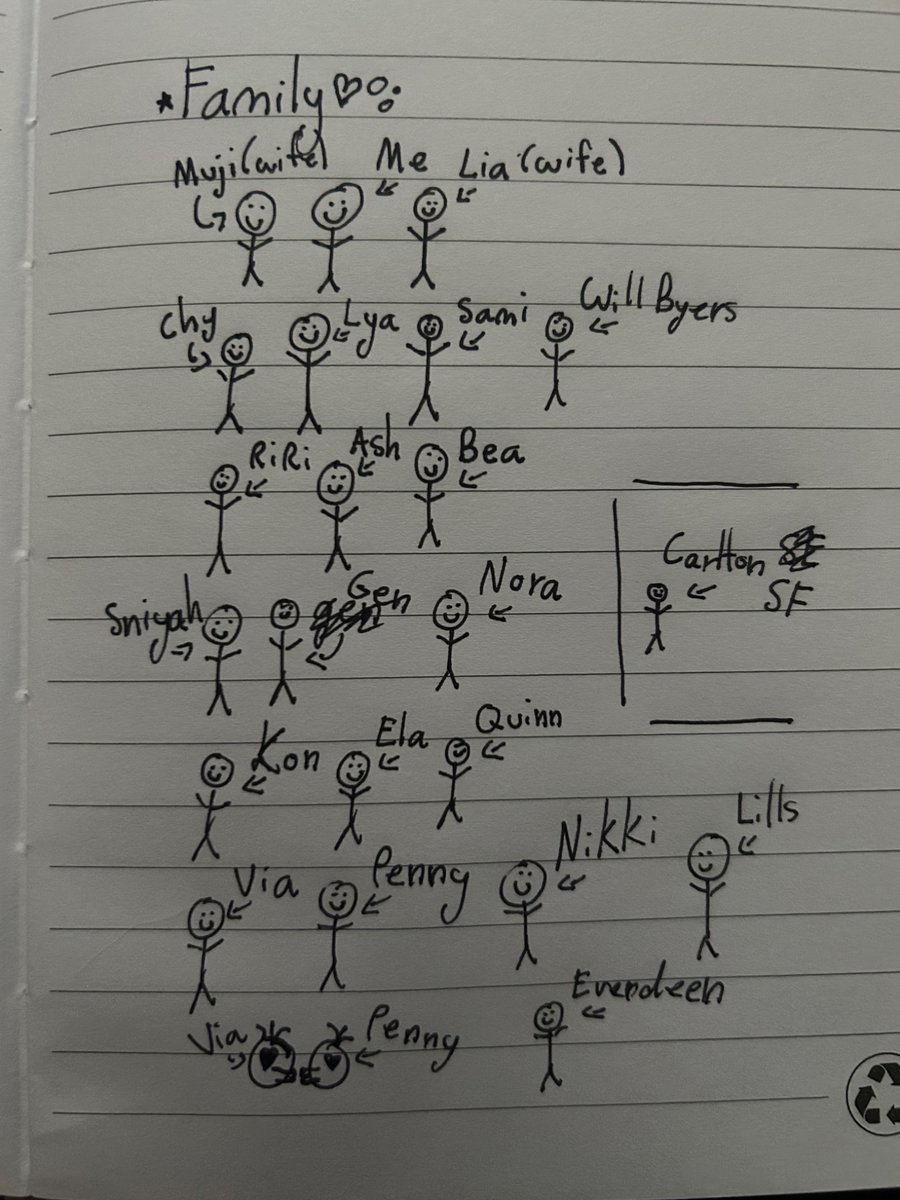 *Family
Muji (wife) Me Lia (wife)
Chy Lya Sami Will Byers
RiRi Ash Bea
Sniyah Gen Nora
Carlton
SF
Kon Ela Quinn
Via Penny Nikki Lills
Via Penny Everdeen